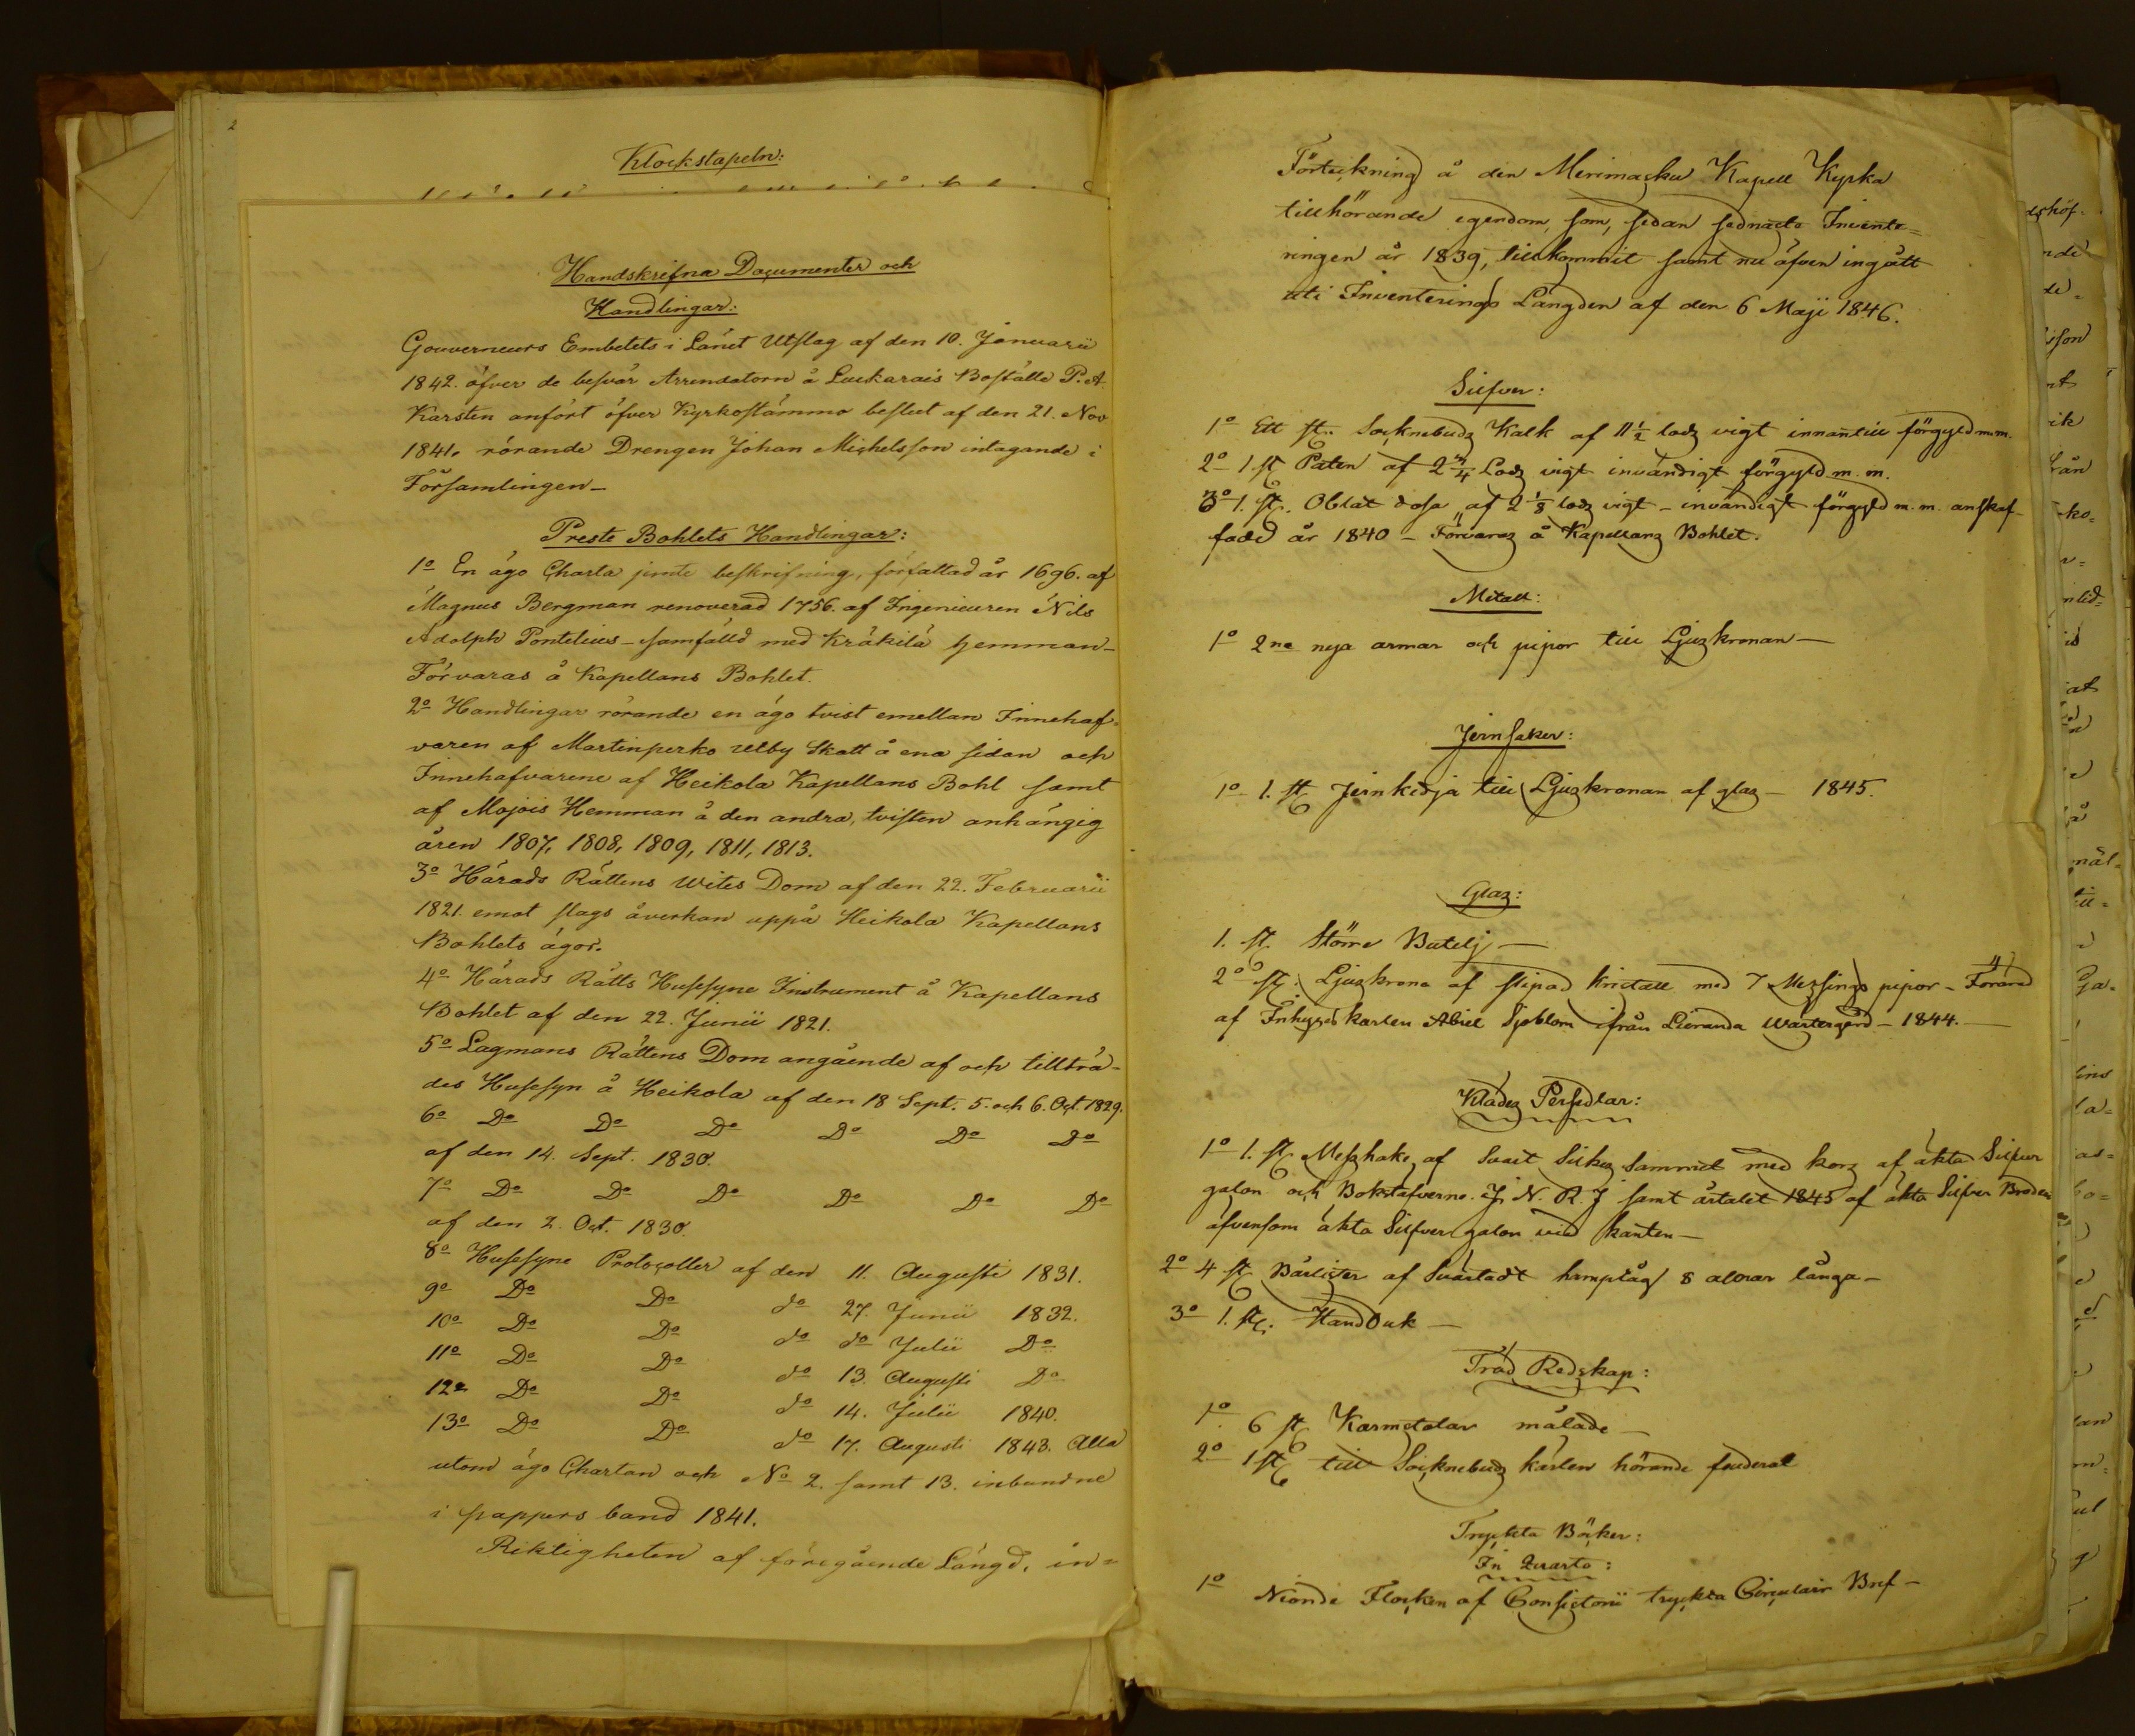 2
Klockstapeln:
Handskrifna Documenter och
Handlingar:
Gouverneurs Embetets i Länet Utslag af den 10. Januarii
1842. öfver de besvär Arrendatorn å Luckarais Boställe P. A.
Karsten anfört öfver Kyrkostämmo beslut af den 21. Nov
1841. rörande Drengen Johan Michelsson intagande i
Församlingen_
Preste Bohlets Handlingar:
1o En ägo Charta jemte beskrifning, författad år 1696. af
Magnus Bergman renoverad 1756. af Ingenieuren Nils
Adolph Pontelius _ samfälld med Kräkilä hemman_
Förvaras å Kapellans Bohlet.
2o Handlingar rörande en ägo tvist emellan Innehaf=
varen af Martinperko utby Skatt å ena sidan och
Innehafvarene af Heikola Kapellans Bohl samt
af Mojois Hemman å den andra, tvisten anhängig
åren 1807, 1808, 1809, 1811, 1813.
3o Härads Rättens Wites Dom af den 22. Februarii
1821. emot slags åverkan uppå Heikola Kapellans
Bohlets ägor.
4o Härads Rätts Husesyne Instrument å Kapellans
Bohlet af den 22. Junii 1821.
5o Lagmans Rättens Dom angående af och tillträ-
des Husesyn å Heikola af den 18 Sept. 5. och 6. Oct. 1829.
6o Do Do Do Do Do Do
af den 14. Sept. 1830.
7o Do Do Do Do Do Do
af den 2. Oct. 1830.
8o Husesyne Protocoller af den 11. Augusti 1831.
9o Do Do do 27. Junii 1832.
10o Do Do do do Julii Do
11o Do Do do 13. Augusti Do
12o Do Do do 14. Julii 1840.
13o Do Do do 17. Augusti 1843. Alla
utom ägo Chartan och No 2. samt 13. inbundne
i pappers band 1841.
Riktigheten af föregående Längd, in=
Förteckning å den Merimasku Kapell Kyrka
tillhörande egendom, som, sedan sednaste Invente=
ringen år 1839, tillkommit samt nu äfven ingått
uti Inventerings Längden af den 6 Maji 1846.
Silfver:
1o Ett st. Socknebuds Kalk af 11 1/2 lods vigt innantill förgyld m.m.
2o 1. st. Paten af 2 3/4 Lods vigt invändigt förgyld m. m.
3o 1. st. Oblat dosa af 2 1/8 lods vigt – invändigt förgyld m. m. anskaf-
fadt år 1840 – Förvaras å Kapellans Bohlet.
Metall:
1o 2ne nya armar och pipor till Ljuskronan —
Jernsaker:
1o 1. st. Jernkedja till Ljuskronan af glas – 1845.
Glas:
1. st. Större Butelj —
2o st. Ljuskrona af slipad kristall med 7 Messings pipor – Förärad
af Inhyses karlen Abiel Sjöblom ifrån Lieranda Wästergård – 1844. —
Klädes Persedlar:
1o 1. st. Messhake af Svart Silkes Sammet med kors af äkta Silfver
galon och Bokstäfverne. J. N. R. J samt årtalet 1845 af äkta Silfver Broderi
äfvensom äkta Silfver galon vid kanten —
2o 4 st. Bärlister af Svärtadt hamptåg 8 alnar långa –
3o 1. st. Handduk —
Träd Redskap:
1o 6 st. Karmstolar målade —
2o 1 st. till Socknebuds kärlen hörande fouderal
Tryckta Böcker:
In Quarto:
1o Nionde Flocken af Consistorii tryckta Circulair Bref –